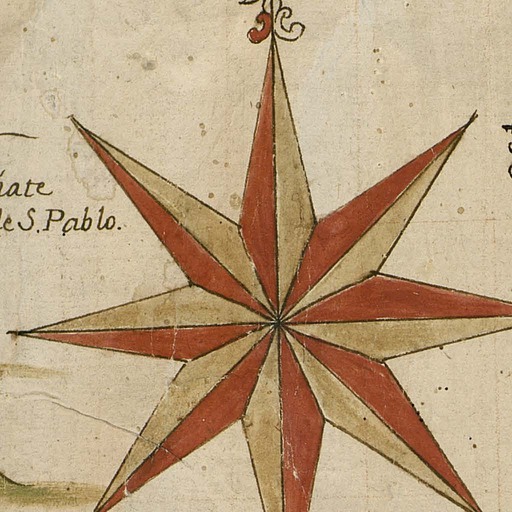 iate
de S. Pablo.